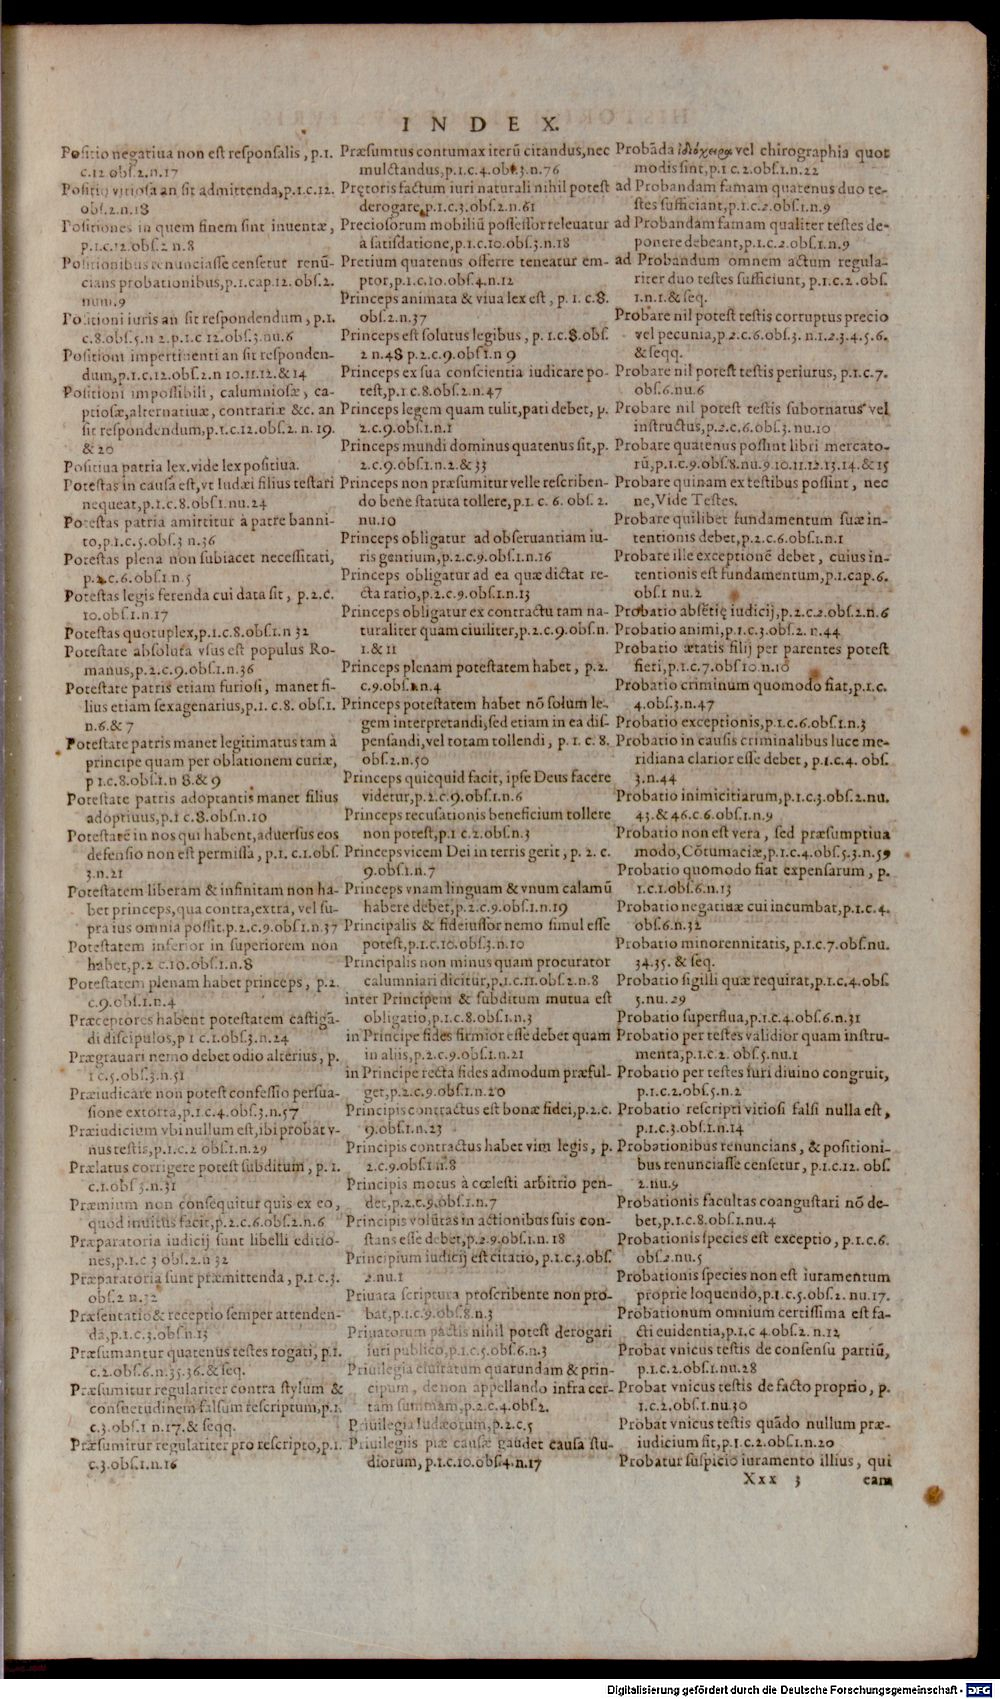 INDEX.
Positio negatiua non est responsalis, p.1.
c.12 obs.2.n.17
Positio vitiosa an sit admittenda,p.1.c.12.
obs.2.n.18
Positiones in quem finem sint inuentæ,
p.1.c.12.obs.2 n.8
Positionibus renunciasse censetur renũ-
cians probationibus,p.1.cap.12. obs.2.
num.9
Positioni iuris an sit respondendum, p.1.
c.8.obs.5.n 2.p.1.c 12.obs.3.nu.6
Positioni impertinenti an sit responden-
dum,p.1.c.12.obs.2.n 10.11.12.& 14
Positioni impossibili, calumniosæ, ca-
ptiosæ,alternatiuæ, contrariæ &c. an
sit respondendum,p.1.c.12.obs.2. n. 19.
& 20
Positiua patria lex.vide lex positiua.
Potestas in causa est,vt Iudæi filius testari
nequeat,p.1.c.8.obs.1.nu.24
Potestas patria amittitur à patre banni-
to,p.1.c.5.obs.3 n.36
Potestas plena non subiacet necessitati,
p.2.c.6.obs.1.n.5
Potestas legis ferenda cui data sit, p.2.c.
10.obs.1.n.17
Potestas quotuplex,p.1.c.8.obs.1.n 32
Potestate absoluta vsus est populus Ro-
manus,p.2.c.9.obs.1.n.36
Potestate patris etiam furiosi, manet fi-
lius etiam sexagenarius,p.1.c.8. obs.1.
n.6.& 7
Potestate patris manet legitimatus tam à
principe quam per oblationem curiæ,
p 1.c.8.obs.1.n 8.& 9
Potestate patris adoptantis manet filius
adoptiuus,p.1 c.8.obs.n.10
Potestatē in nos qui habent,aduersus eos
defensio non est permissa, p.1. c.1.obs.
3.n.21
Potestatem liberam & infinitam non ha-
bet princeps,qua contra,extra, vel su-
pra ius omnia possit.p.2.c.9.obs.1.n.37
Potestatem inferior in superiorem non
habet,p.2 c.10.obs.1.n.8
Potestatem plenam habet princeps, p.2.
c.9.obs.1.n.4
Præceptores habent potestatem castigã-
di discipulos,p 1 c.1.obs.3.n.24
Prægrauari nemo debet odio alterius, p.
1 c.5.obs.3.n.51
Præiudicare non potest confessio persua-
sione extorta,p.1.c.4.obs.3.n.57
Præiudicium vbi nullum est,ibi probat v-
nus testis,p.1.c.2 obs.1.n.29
Prælatus corrigere potest subditum, p. 1.
c.1.obs 3.n.31
Præmium non consequitur quis ex eo,
quod inuitus facit,p.2.c.6.obs.2.n.6
Præparatoria iudicij sunt libelli editio-
nes,p.1.c 3 obs.2.n 32
Præparatoria sunt præmittenda, p.1.c.3.
obs.2 n.32
Præsentatio & receptio semper attenden-
da,p.1.c.3.obs.n.13
Præsumantur quatenus testes rogati, p.1.
c.2.obs.6.n.35.36.& seq.
Præsumitur regulariter contra stylum &
consuetudinem falsum rescriptum,p.1.
c.3.obs.1 n.17.& seqq.
Præsumitur regulariter pro rescripto,p.1.
c.3.obs.1.n.16
Præsumtus contumax iterũ citandus,nec
mulctandus,p.1.c.4.obs.3.n.76
Prętoris factum iuri naturali nihil potest
derogare,p.1.c.3.obs.2.n.61
Preciosorum mobiliũ possessor releuatur
à satisdatione,p.1.c.10.obs.3.n.18
Pretium quatenus offerre teneatur em-
ptor,p.1.c.10.obs.4.n.12
Princeps animata & viua lex est, p. 1. c.8.
obs.2.n.37
Princeps est solutus legibus, p. 1.c.8.obs.
2 n.48 p.2.c.9.obs.1.n 9
Princeps ex sua conscientia iudicare po-
test,p.1 c.8.obs.2.n.47
Princeps legem quam tulit,pati debet, p.
2.c.9.obs.1.n.1
Princeps mundi dominus quatenus sit,p.
2.c.9.obs.1.n.2.& 33
Princeps non præsumitur velle rescriben-
do bene statuta tollere,p.1. c. 6. obs. 2.
nu.10
Princeps obligatur ad obseruantiam iu-
ris gentium,p.2.c.9.obs.1.n.16
Princeps obligatur ad ea quæ dictat re-
cta ratio,p.2.c.9.obs.1.n.13
Princeps obligatur ex contractu tam na-
turaliter quam ciuiliter,p.2.c.9.obs.n.
1.& 11
Princeps plenam potestatem habet, p.2.
c.9.obs.1.n.4
Princeps potestatem habet nõ solum le-
gem interpretandi,sed etiam in ea dis-
pensandi,vel totam tollendi, p. 1. c. 8.
obs.2.n.50
Princeps quicquid facit, ipse Deus facere
videtur,p.2.c.9.obs.1.n.6
Princeps recusationis beneficium tollere
non potest,p.1 c.2.obs.n.3
Princeps vicem Dei in terris gerit, p. 2. c.
9.obs.1.n.7
Princeps vnam linguam & vnum calamũ
habere debet,p.2.c.9.obs.1.n.19
Principalis & fideiussor nemo simul esse
potest,p.1.c.10.obs.3.n.10
Principalis non minus quam procurator
calumniari dicitur,p.1.c.11.obs.2.n.8
inter Principem & subditum mutua est
obligatio,p.1.c.8.obs.1.n.3
in Principe fides firmior esse debet quam
in aliis,p.2.c.9.obs.1.n.21
in Principe recta fides admodum præful-
get,p.2.c.9.obs.1.n.20
Principis contractus est bonæ fidei,p.2.c.
9.obs.1.n.23
Principis contractus habet vim legis, p.
2.c.9.obs.1 n.8
Principis motus à cœlesti arbitrio pen-
det,p.2.c.9.obs.1.n.7
Principis volũtas in actionibus suis con-
stans esse debet,p.2.9.obs.1.n. 18
Principium iudicij est citatio, p.1.c.3.obs.
2.nu.1
Priuata scriptura proscribente non pro-
bat,p.1.c.9.obs.8.n.3
Priuatorum pactis nihil potest derogari
iuri publico,p.1.c.5.obs.6.n.3
Priuilegia ciuitatum quarundam & prin-
cipum, de non appellando infra cer-
tam summam,p.2.c.4.obs.2.
Priuilegia Iudæorum,p.2.c.5
Priuilegiis piæ causæ gaudet causa stu-
diorum, p.1.c.10.obs.4.n.17
Probãda ἰδιόχειρα vel chirographia quot
modis sint,p.1 c.2.obs.1.n.22
ad Probandam famam quatenus duo te-
stes sufficiant,p.1.c.2.obs.1.n.9
ad Probandam famam qualiter testes de-
ponere debeant,p.1.c.2.obs.1.n.9
ad Probandum omnem actum regula-
riter duo testes sufficiunt, p.1.c.2.obs.
1.n.1.& seq.
Probare nil potest testis corruptus precio
vel pecunia,p.2.c.6.obs.3. n.1.2.3.4.5.6.
& seqq.
Probare nil potest testis periurus, p.1.c.7.
obs.6.nu.6
Probare nil potest testis subornatus vel
instructus,p.2.c.6.obs.3.nu.10
Probare quatenus possint libri mercato-
rũ,p.1.c.9.obs.8.nu.9.10.11.12.13.14.& 15
Probare quinam ex testibus possint, nec
ne,Vide Testes.
Probare quilibet fundamentum suæ in-
tentionis debet,p.2.c.6.obs.1.n.1
Probare ille exceptionẽ debet, cuius in-
tentionis est fundamentum,p.1.cap.6.
obs.1 nu.2
Probatio absẽtię iudicij,p.2.c.2.obs.2.n.6
Probatio animi,p.1.c.3.obs.2. n.44
Probatio ætatis filij per parentes potest
fieri,p.1.c.7.obs 10.n.10
Probatio criminum quomodo fiat,p.1.c.
4.obs.3.n.47
Probatio exceptionis,p.1.c.6.obs.1.n.3
Probatio in causis criminalibus luce me-
ridiana clarior esse debet, p.1.c.4. obs.
3.n.44
Probatio inimicitiarum,p.1.c.3.obs.2.nu.
43.& 46.c.6.obs.1.n.9
Probatio non est vera, sed præsumptiua
modo,Cõtumaciæ,p.1.c.4.obs.5.3.n.59
Probatio quomodo fiat expensarum, p.
1.c.1.obs.6.n.13
Probatio negatiuæ cui incumbat,p.1.c.4.
obs.6.n.32
Probatio minorennitatis, p.1.c.7.obs.nu.
34.35. & seq.
Probatio sigilli quæ requirat,p.1.c.4.obs.
5.nu.29
Probatio superflua,p.1.c.4.obs.6.n.31
Probatio per testes validior quam instru-
menta,p.1.c.2. obs.5.nu.1
Probatio per testes iuri diuino congruit,
p.1.c.2.obs.5.n.2
Probatio rescripti vitiosi falsi nulla est,
p.1.c.3.obs.1.n.14
Probationibus renuncians, & positioni-
bus renunciasse censetur, p.1.c.12. obs.
2.nu.9
Probationis facultas coangustari nõ de-
bet,p.1.c.8.obs.1.nu.4
Probationis species est exceptio, p.1.c.6.
obs.2.nu.5
Probationis species non est iuramentum
proprie loquendo,p.1.c.5.obs.2. nu.17.
Probationum omnium certissima est fa-
cti euidentia,p.1.c 4.obs.2. n.12
Probat vnicus testis de consensu partiũ,
p.1.c.2.obs.1.nu.28
Probat vnicus testis de facto proprio, p.
1.c.2.obs.1.nu.30
Probat vnicus testis quãdo nullum præ-
iudicium sit,p.1.c.2.obs.1.n.20
Probatur suspicio iuramento illius, qui
Xxx 3 eam
Digitalisierung gefördert durch die Deutsche Forschungsgemeinschaft - DFG